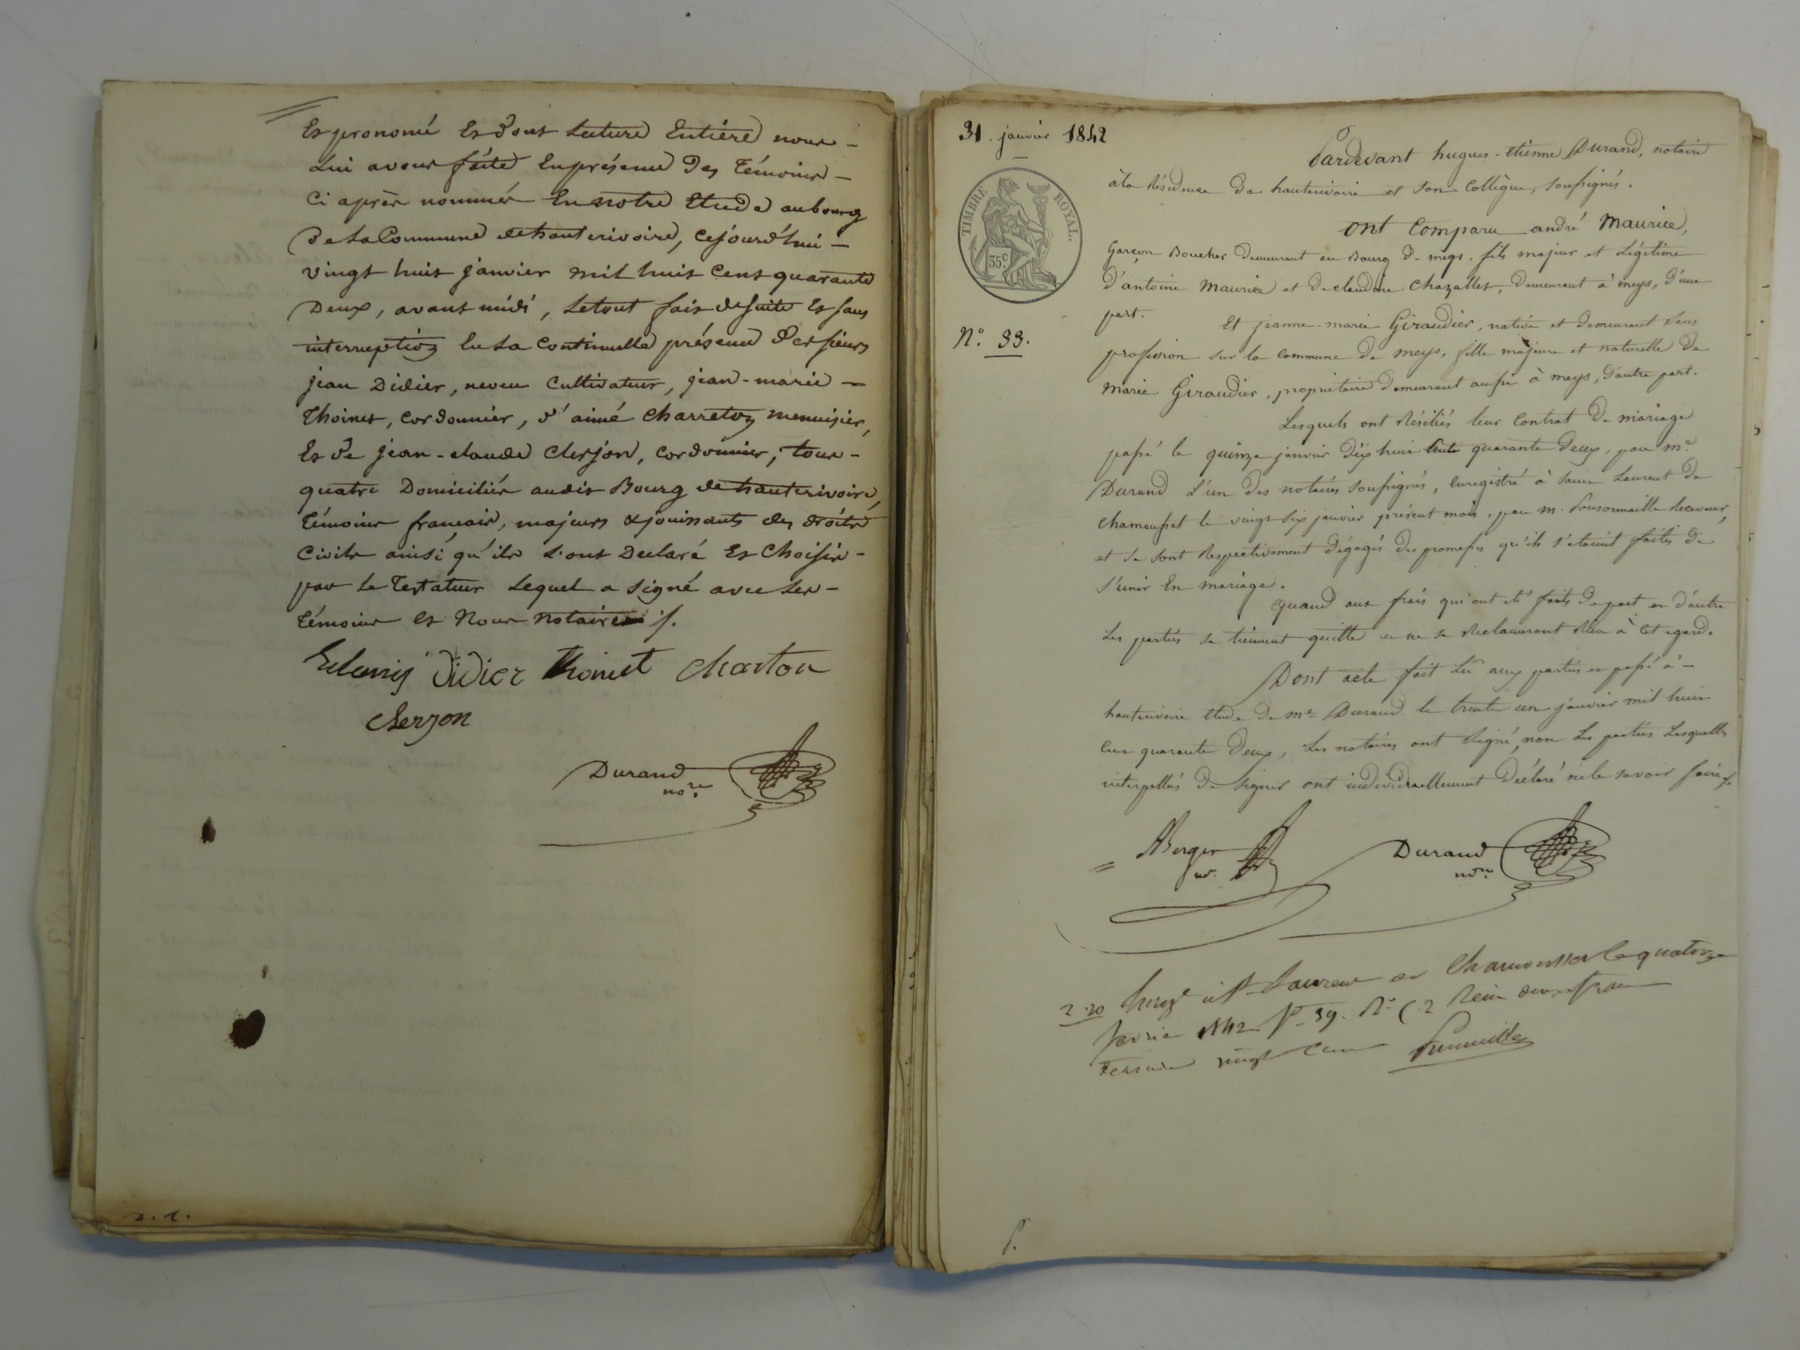 Et prononcé Et dont Lecture Entière nous
Lui avons faite En présence Des Témoins
Ci après nommés En notre Etude au bourg
De La Commune de hauterivoire, Cejourd'hui
vingt huit janvier mil huit Cent quarante
Deux, avant midi, Le tout fait de suite Et sans
interruption En La Continuelle présence Des sieurs
jean Didier, neveu Cultivateur, jean-marie
Thoinet, Cordonnier, d'aimé Charreton menuisier,
Et de jean-claude Clerjon, Cordonnier, tous
quatre Domiciliés audit Bourg de hauterivoire,
Témoins français, majeurs & jouissants des droits
Civils ainsi qu'ils L'ont Declaré Et Choisis
par le Testateur Lequel a Signé avec Les
témoins et Nous notaire ·/.
Didier Thoinet Charton
Clerjon
Durand
nore.
31. janvier 1842
TIMBRE ROYAL.
35c
N°. 33.
Pardevant hugues-etienne Durand, notaire
à la Résidence De hauterivoire et son Collègue, soussignés.
Ont Comparu andré Maurice,
Garçon Boucher demeurant au Bourg de meys, fils majeur et Légitime
D'antoine Maurice et de claudine Chazallet, demeurant à meys, D'une
part.
Et jeanne-marie Giraudier, native et demeurant sans
profession sur la commune de meys, fille majeure et naturelle de
Marie Giraudier, propriétaire demeurant aussi à meys, D'autre part.
Lesquels ont Résiliés leur Contrat De mariage
passé le quinze janvier dix huit Cent quarante Deux, par me.
Durand L'un des notaires soussignés, Enregistré à Saint Laurent de
Chamousset le vingt six janvier présent mois, par m. Receveur,
et se sont Respectivement dégagés des promesses qu'ils s'etaient faites de
s'unir En mariage.
Quand aux frais qui ont été faits de part et d'autre
Les parties se tiennent quitte et ne se Reclameront Rien à cet egard.
Dont acte fait Lu aux parties et passé à
hauterivoire etude De me. Durand le trente un janvier mil huit
Cent quarante Deux, Les notaires ont Signé, non Les parties Lesquelles
interpellés De Signer ont individuellement Déclaré ne le savoir faire ./.
Berger
nre.
Durand
nore.
2.20 Enregé à St Laurent de Chamousset le quatorze
fevrier 1842 fo 39. Ro C. 2 Reçu deux francs
Decime vingt Cent